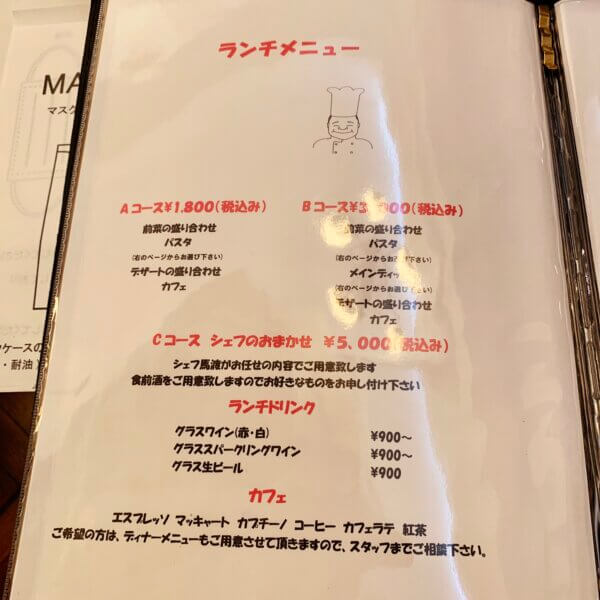 ランチメニュー
MA
マスク
Aコース¥1,800(税込み)
前菜の盛り合わせ
パスタ
(右のページからお選び下さい)
デザートの盛り合わせ
カフェ
Bコース¥3 00(税込み)
前菜の盛り合わせ
パスタ
(右のページからお選び下さい)
メインディッ
(右のページからお選び下さい)
デザートの盛り合わせ
カフェ
Cコース シェフのおまかせ ¥5,000(税込み)
シェフ馬渡がお任せの内容でご用意致します
食前酒をご用意致しますのでお好きなものをお申し付け下さい
ランチドリンク
グラスワイン(赤・白) ¥900〜
グラススパークリングワイン ¥900〜
グラス生ビール ¥900
カフェ
エスプレッソ マッキャート カプチーノ コーヒー カフェラテ 紅茶
ご希望の方は、ディナーメニューもご用意させて頂きますので、スタッフまでご相談下さい。
ケースの
・耐油